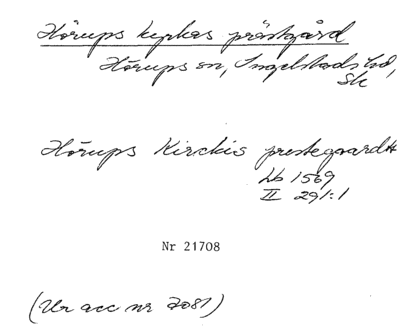 Hörups kyrkas prästgård
Hörups sn, Ingelstads hd,
Sk
Hörups Kirckis prestegaardtt
Lb 1569
II 291:1
Nr 21708
(Ur acc nr 2081)